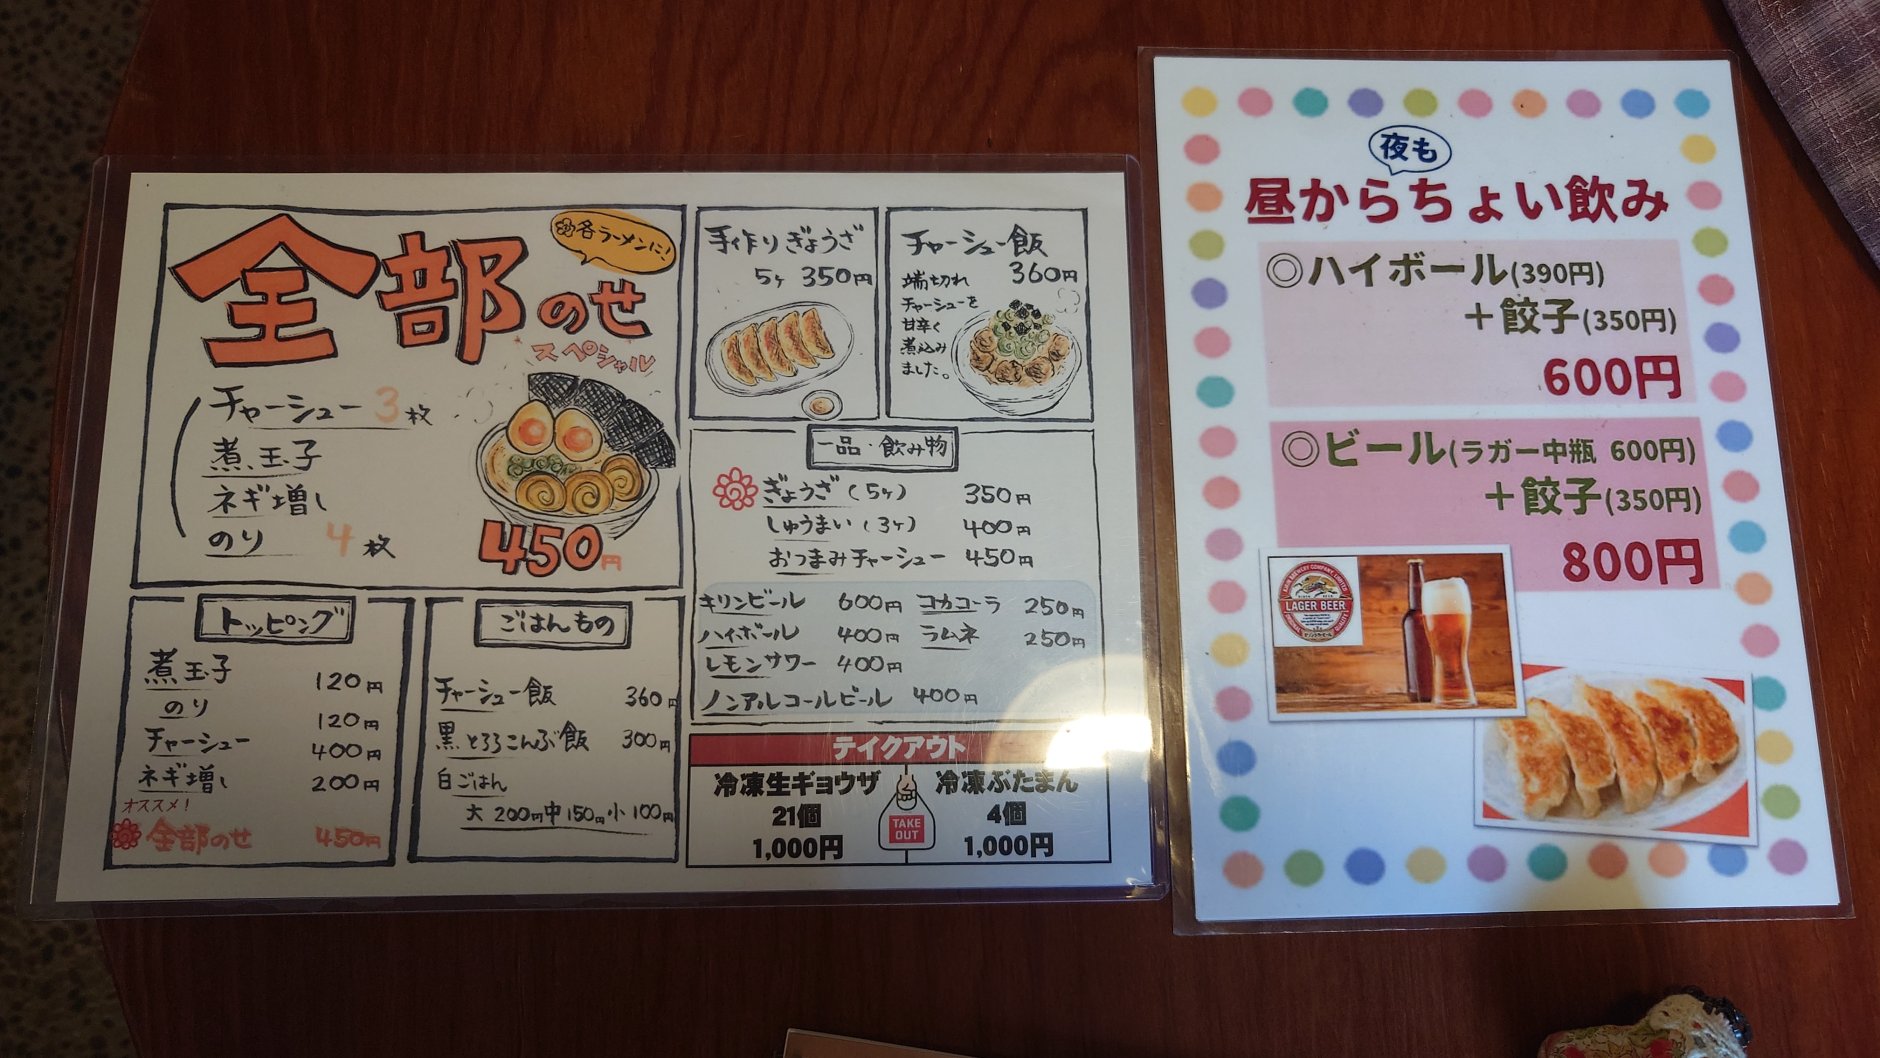 全部のせ
スペシャル
各ラーメンに!
チャーシュー 3枚
煮玉子
ネギ増し
のり 4枚
450円
トッピング
煮玉子 120円
のり 120円
チャーシュー 400円
ネギ増し 200円
オススメ!
全部のせ 450円
ごはんもの
チャーシュー飯 360円
黒とろろこんぶ飯 300円
白ごはん
大 200円 中 150円 小 100円
手作りぎょうざ
5ヶ 350円
チャーシュー飯
360円
端切れ
チャーシューを
甘辛く
煮込み
ました。
一品・飲み物
ぎょうざ(5ヶ) 350円
しゅうまい(3ヶ) 400円
おつまみチャーシュー 450円
キリンビール 600円 コカコーラ 250円
ハイボール 400円 ラムネ 250円
レモンサワー 400円
ノンアルコールビール 400円
テイクアウト
冷凍生ギョウザ
21個
1,000円
TAKE
OUT
冷凍ぶたまん
4個
1,000円
夜も
昼からちょい飲み
◎ハイボール(390円)
+餃子(350円)
600円
◎ビール(ラガー中瓶 600円)
+餃子(350円)
800円
LAGER BEER